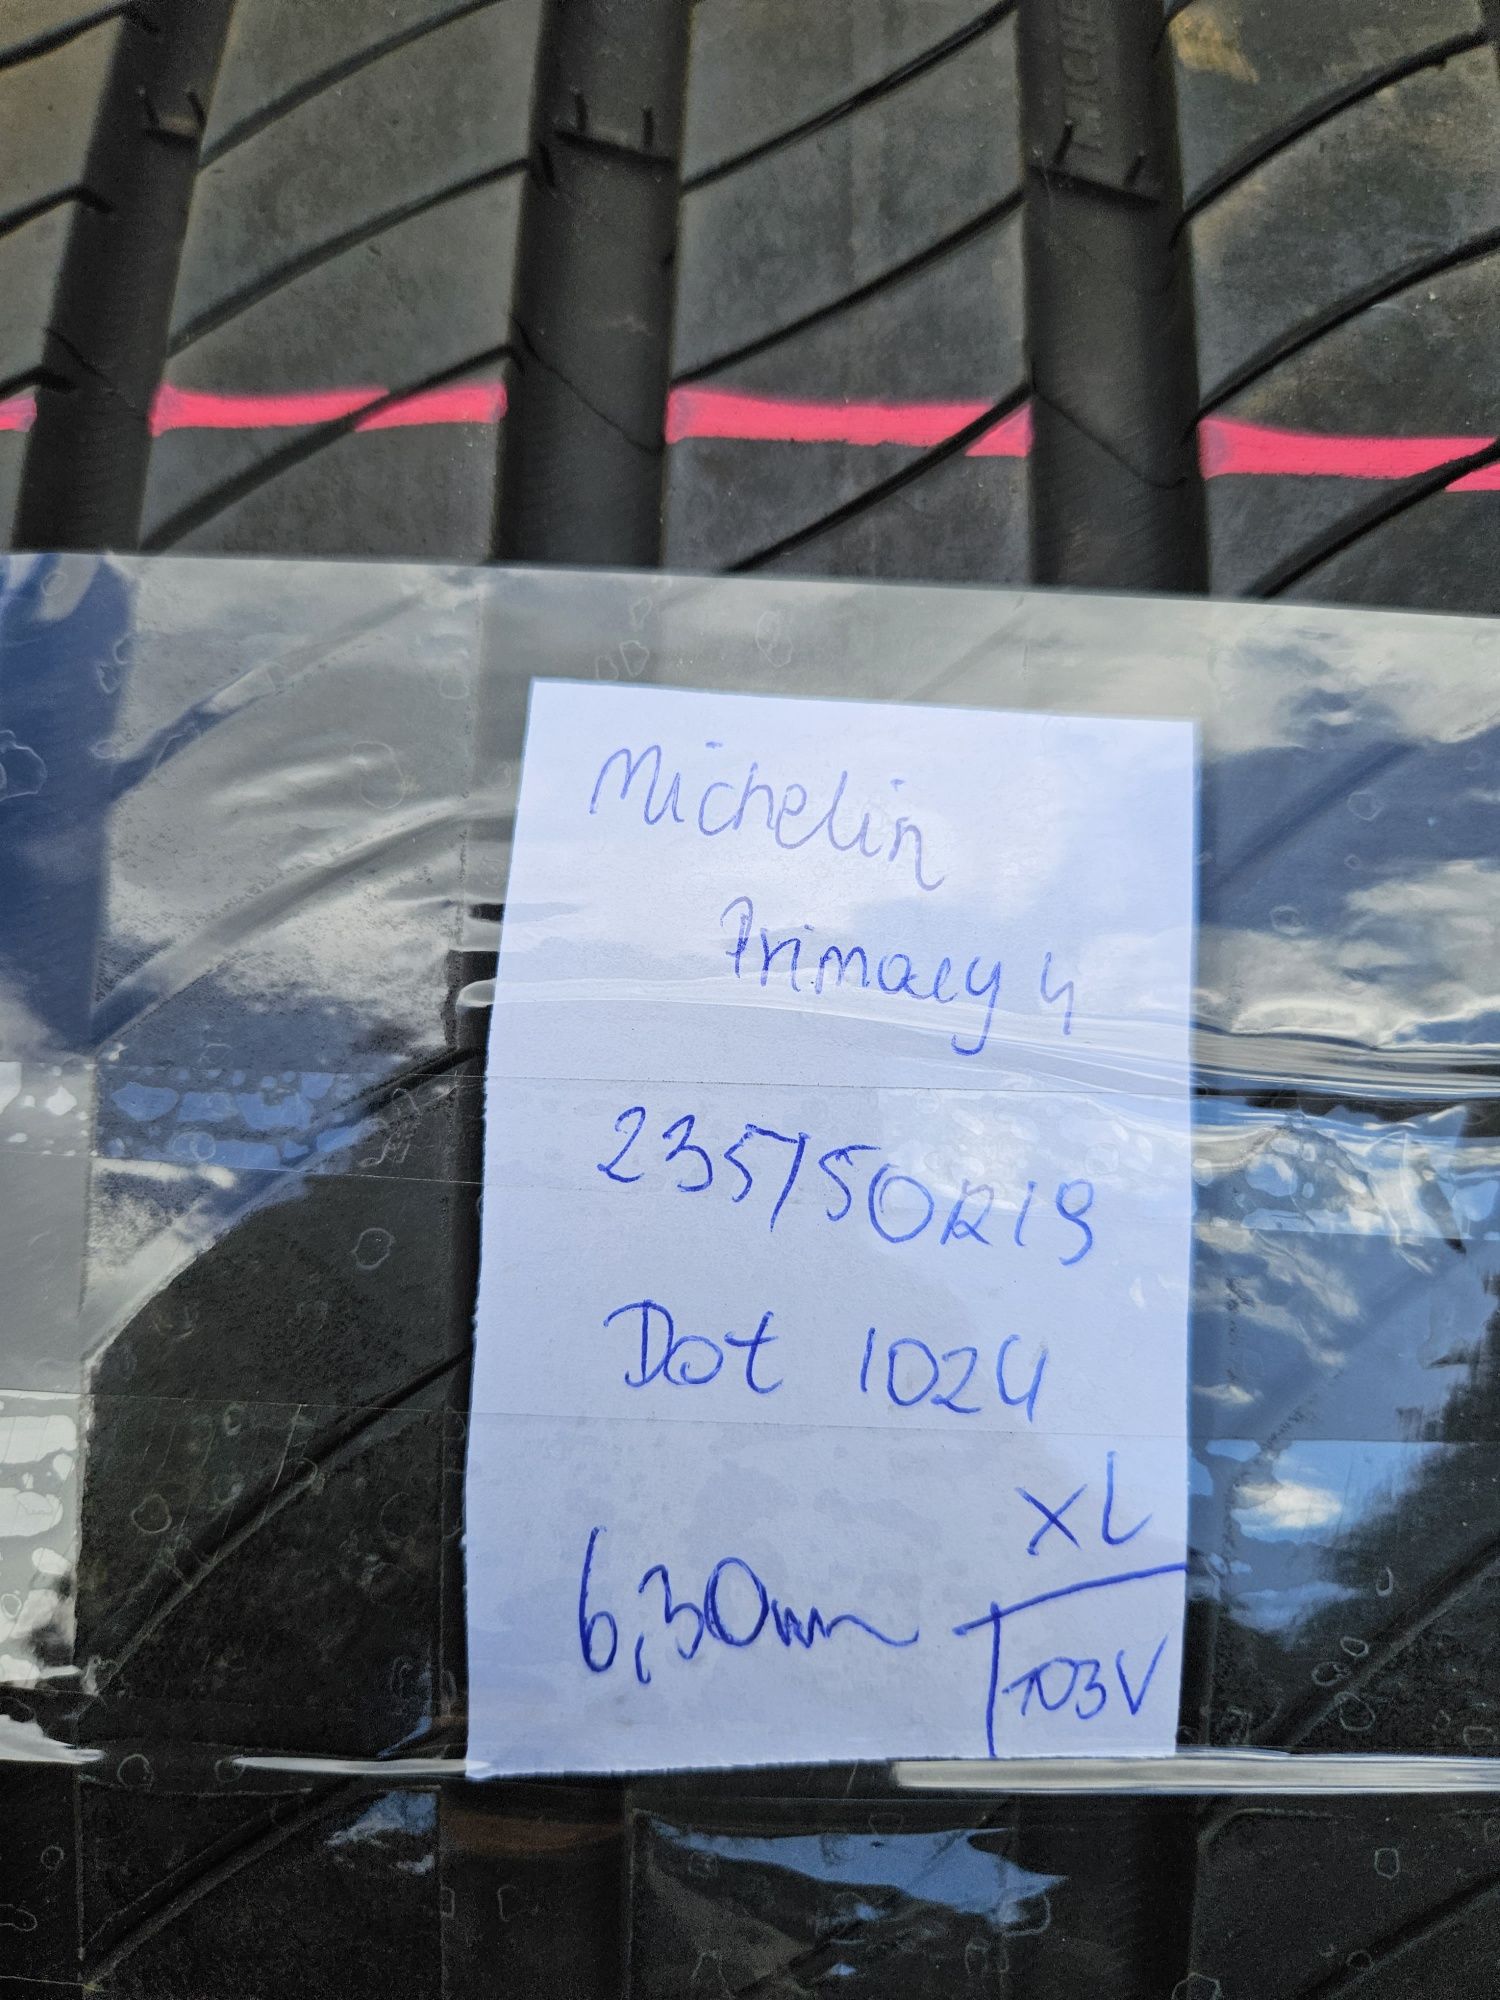 Michelin
Primacy 4
235/50R19
Dot 1024
XL
6,30mm
103V